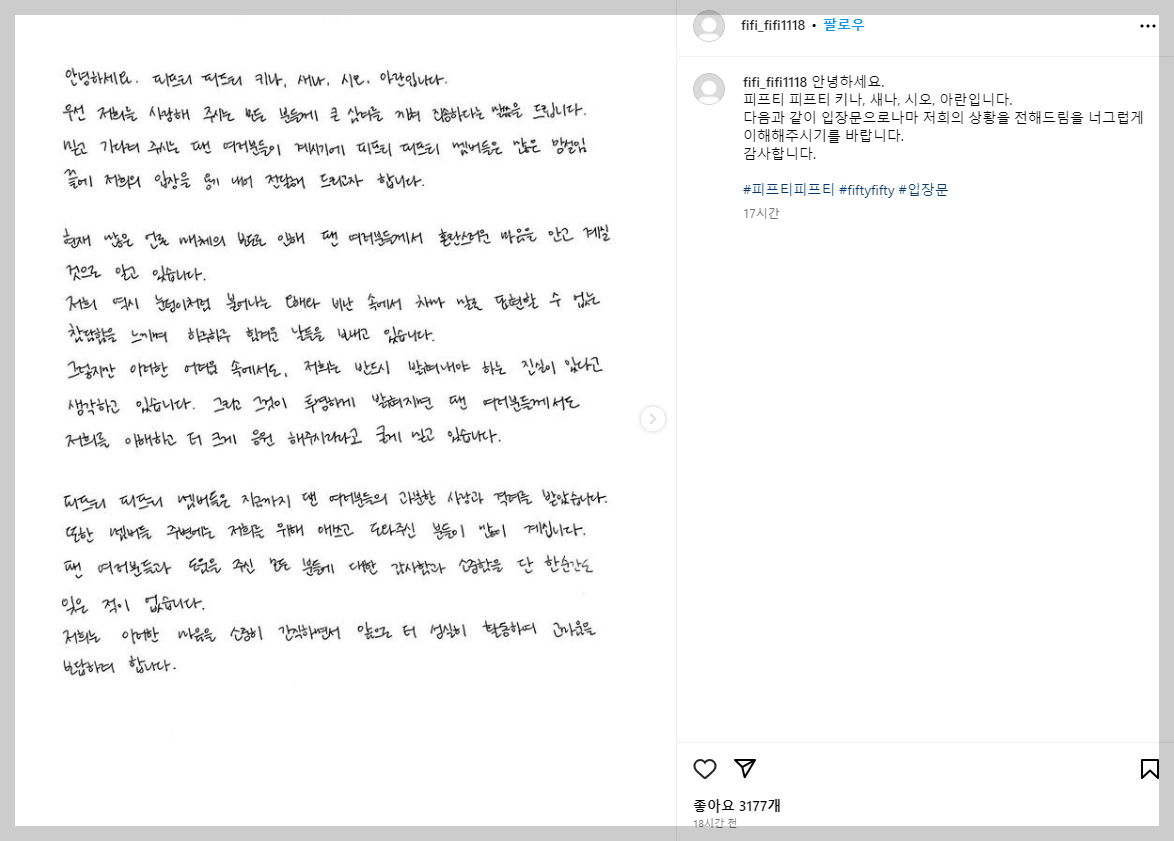 안녕하세요. 피프티 피프티 키나, 새나, 시오, 아란입니다.
우선 저희를 사랑해 주시는 모든 분들께 큰 심려를 끼쳐 죄송하다는 말씀을 드립니다.
믿고 기다려 주시는 팬 여러분들이 계시기에 피프티 피프티 멤버들은 많은 망설임
끝에 저희의 입장을 용기 내어 전달해 드리고자 합니다.
현재 많은 언론 매체의 보도로 인해 팬 여러분들께서 혼란스러운 마음을 안고 계실
것으로 알고 있습니다.
저희 역시 눈덩이처럼 불어나는 오해와 비난 속에서 차마 말로 표현할 수 없는
참담함을 느끼며 하루하루 힘겨운 날들을 보내고 있습니다.
그렇지만 이러한 어려움 속에서도, 저희는 반드시 밝혀내야 하는 진실이 있다고
생각하고 있습니다. 그리고 그것이 투명하게 밝혀지면 팬 여러분들께서도
저희를 이해하고 더 크게 응원 해주시리라고 굳게 믿고 있습니다.
피프티 피프티 멤버들은 지금까지 팬 여러분들의 과분한 사랑과 격려를 받았습니다.
또한 멤버들 주변에는 저희를 위해 애쓰고 도와주신 분들이 많이 계십니다.
팬 여러분들과 도움을 주신 모든 분들에 대한 감사함과 소중함을 단 한순간도
잊은 적이 없습니다.
저희는 이러한 마음을 소중히 간직하면서 앞으로 더 성실히 활동하여 고마움을
보답하려 합니다.
fifi_fifi1118 • 팔로우
fifi_fifi1118 안녕하세요.
피프티 피프티 키나, 새나, 시오, 아란입니다.
다음과 같이 입장문으로나마 저희의 상황을 전해드림을 너그럽게
이해해주시기를 바랍니다.
감사합니다.
#피프티피프티 #fiftyfifty #입장문
17시간
좋아요 3177개
18시간 전